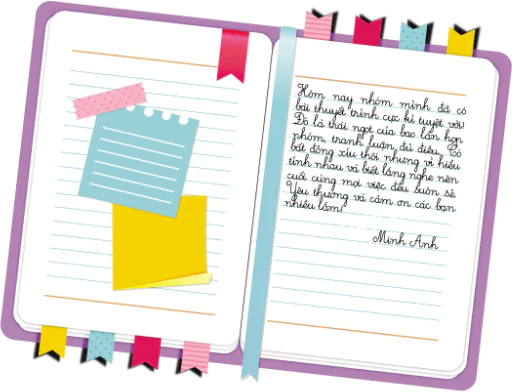 Hôm nay nhóm mình đã có
bài thuyết trình cực kì tuyệt vời!
Đó là thái ngọt của bao lần họp
nhóm, thanh luận đủ điều. Có
bất đồng xíu thôi nhưng vì hiểu
tính nhau và biết lắng nghe nên
cuối cùng mọi việc đều suôn sẻ.
Yêu thương và cảm ơn các bạn
nhiều lắm!
Minh Anh